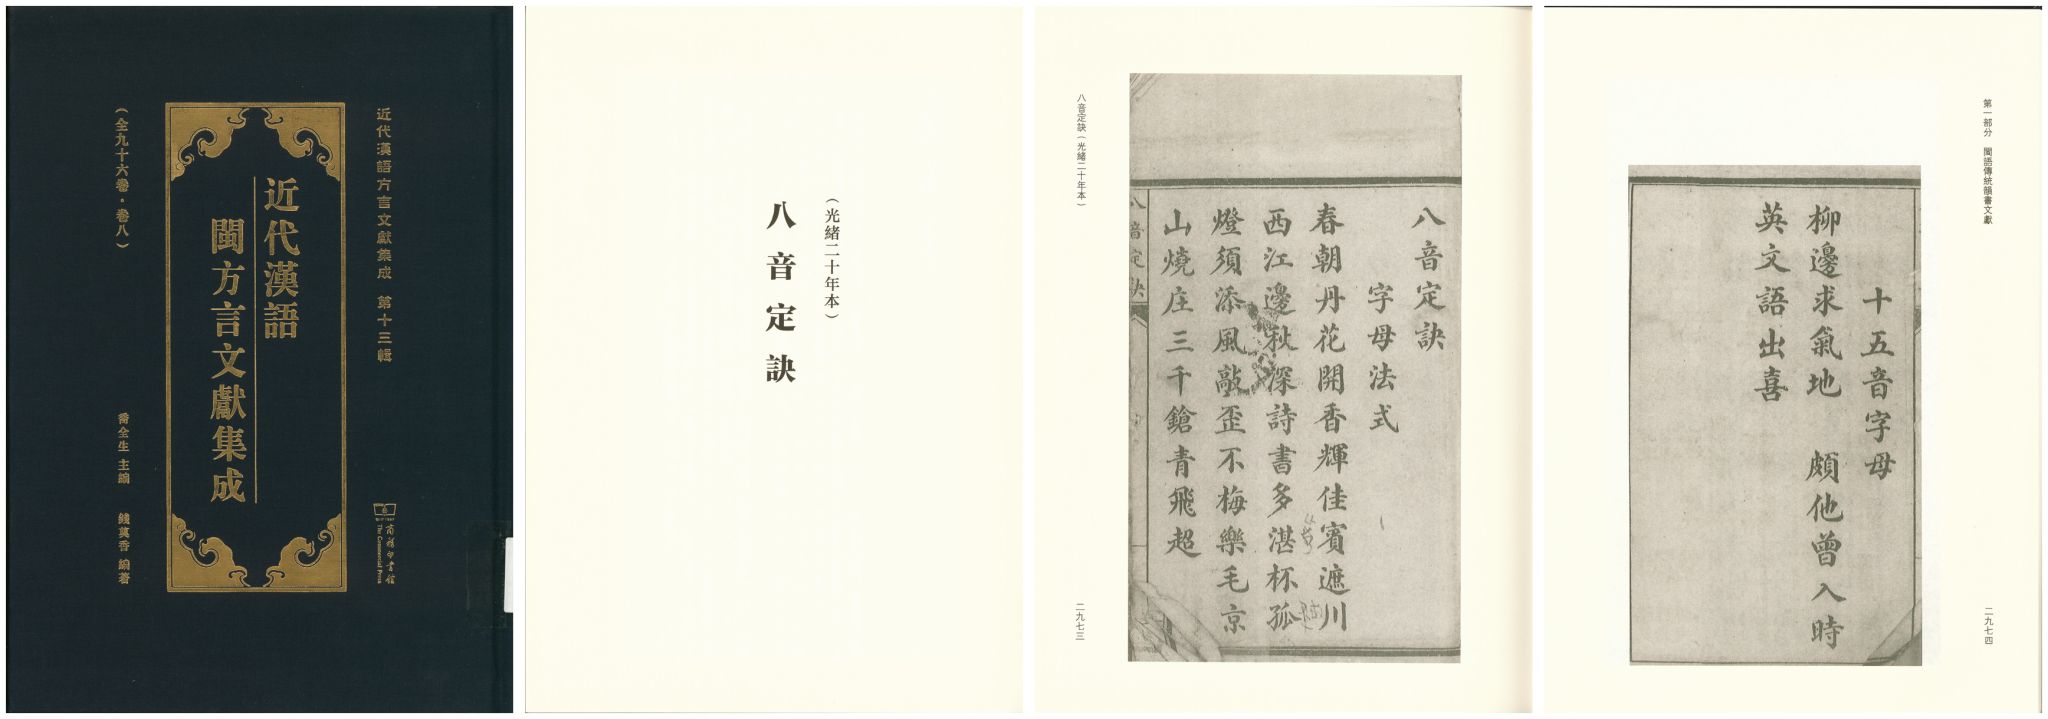 近代漢語方言文獻集成 第十三輯
商務印書館
The Commercial Press
近代漢語
閩方言文獻集成
（全九十六卷·卷八）
喬全生 主編 錢奠香 編著
（光緒二十年本）
八音定訣
八音定訣
字母法式
春朝丹花開香輝佳賓遮川
西江邊秋深詩書多湛杯孤
燈須添風敲歪不梅樂毛京
山燒庄三千鎗青飛超
八音定訣
八音定訣（光緒二十年本）
二九七三
第一部分 閩語傳統韻書文獻
二九七四
十五音字母
柳邊求氣地 頗他曾入時
英文語出喜